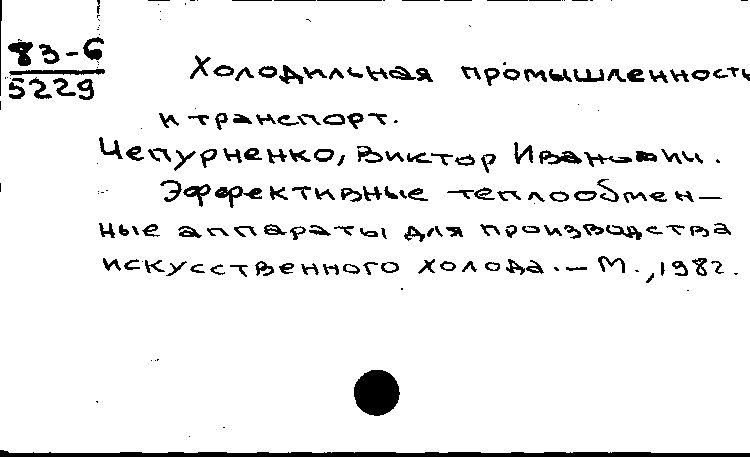 83-6
5229
Холодильная промышленность
и транспорт.
Чепурненко, Виктор Иванович.
Эффективные теплообмен-
ные аппараты для производства
искусственного холода. - М., 1982.